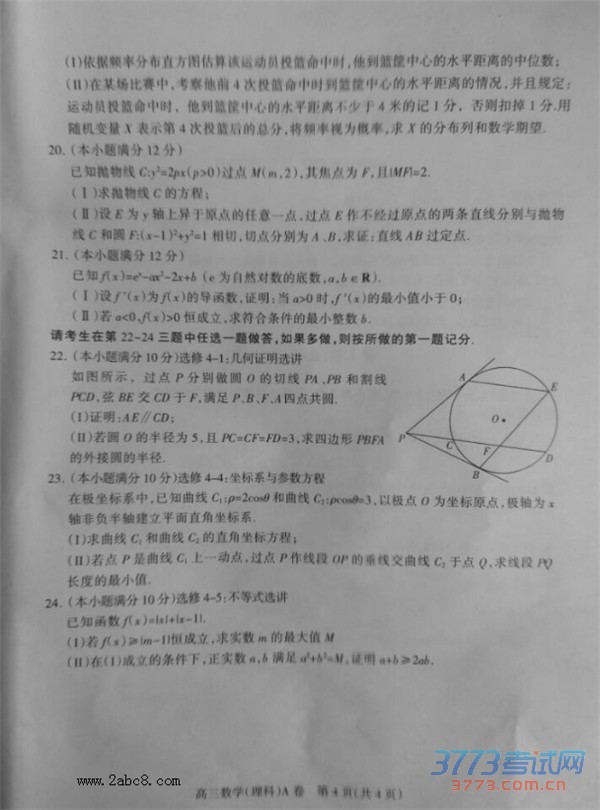 (Ⅰ)依据频率分布直方图估算该运动员投篮命中时,他到篮筐中心的水平距离的中位数;
(Ⅱ)在某场比赛中,考察他前4次投篮命中时到篮筐中心的水平距离的情况,并且规定:
运动员投篮命中时,他到篮筐中心的水平距离不少于4米的记1分,否则扣掉1分.用
随机变量X表示第4次投篮后的总分,将频率视为概率,求X的分布列和数学期望.
20.(本小题满分12分)
已知抛物线C:y²=2px(p>0)过点M(m,2),其焦点为F,且|MF|=2.
(Ⅰ)求抛物线C的方程;
(Ⅱ)设E为y轴上异于原点的任意一点,过点E作不经过原点的两条直线分别与抛物
线C和圆F:(x-1)²+y²=1相切,切点分别为A、B,求证:直线AB过定点.
21.(本小题满分12分)
已知f(x)=eˣ-ax²-2x+b(e为自然对数的底数,a,b∈R).
(Ⅰ)设f′(x)为f(x)的导函数,证明:当a>0时,f′(x)的最小值小于0;
(Ⅱ)若a<0,f(x)>0恒成立,求符合条件的最小整数b.
请考生在第22~24三题中任选一题做答,如果多做,则按所做的第一题记分.
22.(本小题满分10分)选修4-1:几何证明选讲
如图所示,过点P分别做圆O的切线PA、PB和割线
PCD,弦BE交CD于F,满足P、B、F、A四点共圆.
(Ⅰ)证明:AE∥CD;
(Ⅱ)若圆O的半径为5,且PC=CF=FD=3,求四边形PBFA
的外接圆的半径.
A
E
O
P
C
F
D
B
23.(本小题满分10分)选修4-4:坐标系与参数方程
在极坐标系中,已知曲线C₁:ρ=2cosθ和曲线C₂:ρcosθ=3,以极点O为坐标原点,极轴为x
轴非负半轴建立平面直角坐标系.
(Ⅰ)求曲线C₁和曲线C₂的直角坐标方程;
(Ⅱ)若点P是曲线C₁上一动点,过点P作线段OP的垂线交曲线C₂于点Q,求线段PQ
长度的最小值.
24.(本小题满分10分)选修4-5:不等式选讲
已知函数f(x)=|x|+|x-1|.
(Ⅰ)若f(x)≥|m-1|恒成立,求实数m的最大值M
(Ⅱ)在(Ⅰ)成立的条件下,正实数a,b满足a²+b²=M,证明a+b≥2ab.
www.2abc8.com
高三数学(理科)A卷 第4页(共4页)
3773考试网
3773.com.cn